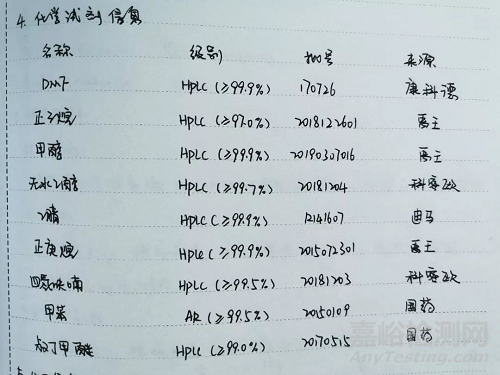 4. 化学试剂信息
名称 级别 批号 来源
DMF HPLC (≥99.9%) 170726 康科德
正己烷 HPLC (≥97.0%) 2018122601 禹王
甲醇 HPLC (≥99.9%) 20190307016 禹王
无水乙醇 HPLC (≥99.7%) 20181204 科密欧
乙腈 HPLC (≥99.9%) 12141607 迪马
正庚烷 HPLC (≥99.9%) 2015072301 禹王
四氢呋喃 HPLC (≥99.5%) 20181203 科密欧
甲苯 AR (≥99.5%) 20150109 国药
叔丁甲醚 HPLC (≥99.0%) 20170515 国药
嘉峪检测网
AnyTesting.com